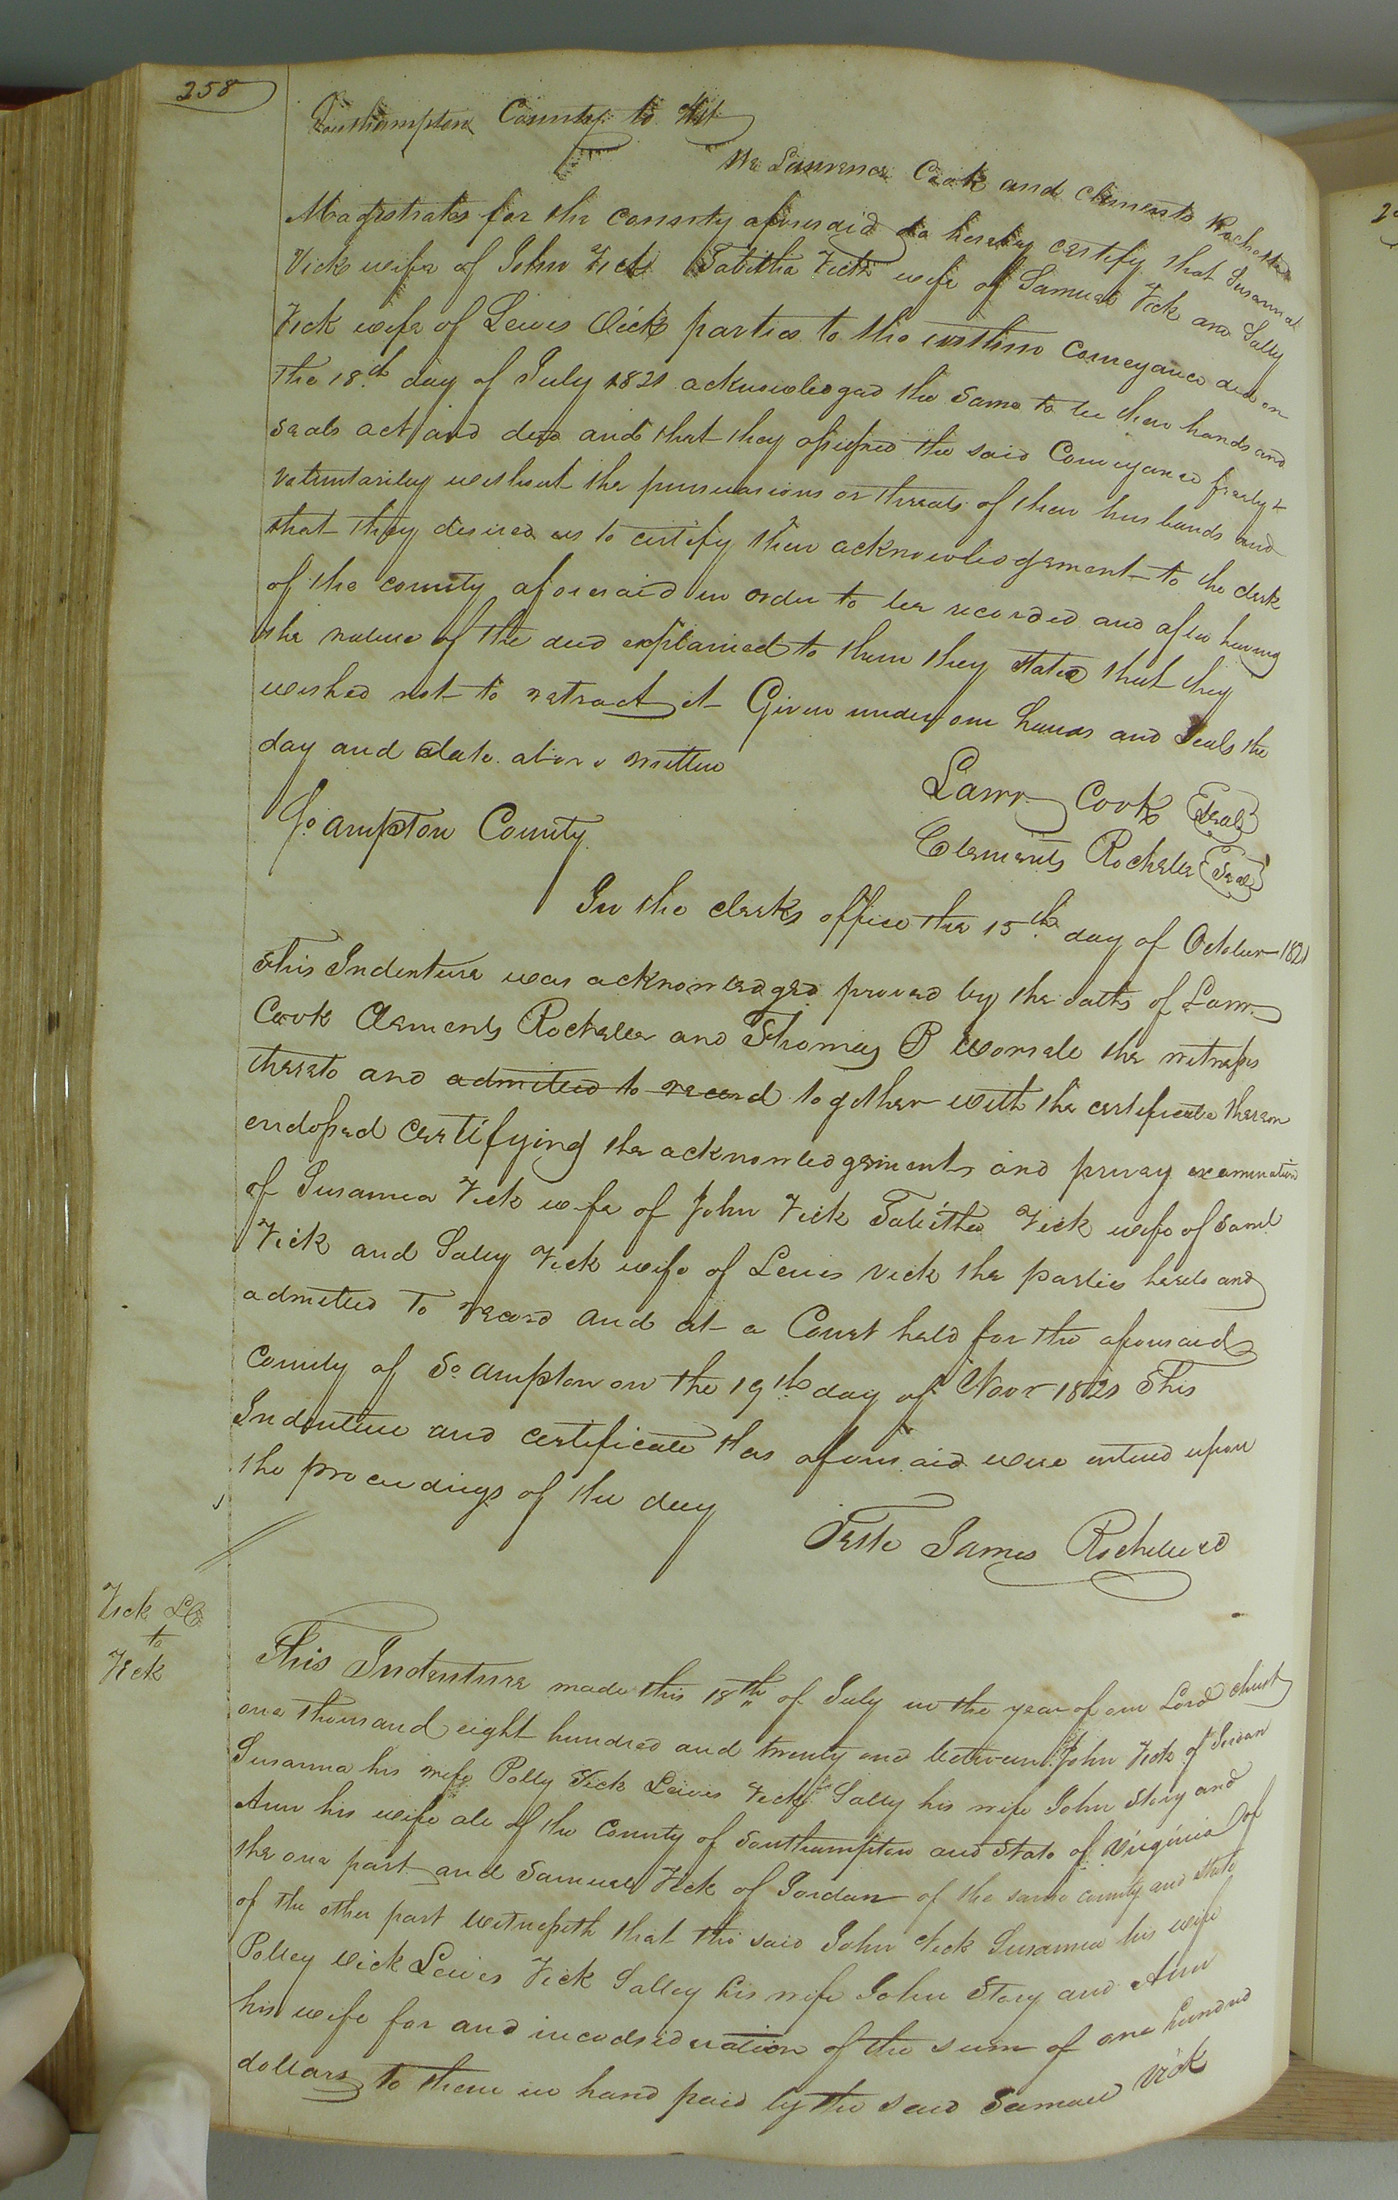 258
Southampton County to Wit
We Lawrence Cook and Clements Rochelle
Magistrates for the county aforesaid do hereby certify that Susannah
Vick wife of John Vick Tabitha Vick wife of Samuel Vick and Sally
Vick wife of Lewis Vick parties to the within conveyance did on
the 18th day of July 1821 acknowledged the same to be their hands and
seals act and deed and that they assigned the said Conveyance freely &
voluntariley without the pursuasions or threats of their husbands and
that they desired us to certify their acknowledgement to the clerk
of the county aforesaid in order to be recorded and after having
the nature of the deed explained to them they stated that they
wished not to retract it Given under our hands and Seals the
day and date above written
Lawr. Cook (Seal)
Clements Rochelle (Seal)
So.ampton County
In the clerks office the 15th day of October 1821
This Indenture was acknowledged proved by the oaths of Lawr.
Cook Clements Rochelle and Thomas B Worrele the witnesses
thereto and admitted to record together with the certificate thereon
endorsed certifying the acknowledgements and privay examination
of Susanna Vick wife of John Vick Tabitha Vick wife of Saml
Vick and Salley Vick wife of Lewis Vick the parties hereto and
admitted to record and at a Court held for the aforesaid
County of So.ampton on the 19th day of Novr 1821 This
Indenture and certificate thes aforesaid were entered upon
the proceedings of the day
Teste James Rochelle
Vick &C
to
Vick
This Indenture made this 18th of July in the year of our Lord christ
one thousand eight hundred and twenty one between John Vick of Jordan
Susanna his wife Polly Vick Lewis Vick & Sally his wife John Story and
Ann his wife all of the County of Southampton and State of Virginia of
the one part and Samuel Vick of Jordan of the same county and state
of the other part witnesseth that the said John Vick Susanna his wife
Polley Vick Lewis Vick Salley his wife John Story and Ann
his wife for and in consideration of the sum of one hundred
dollars to them in hand paid by the said Samuel Vick